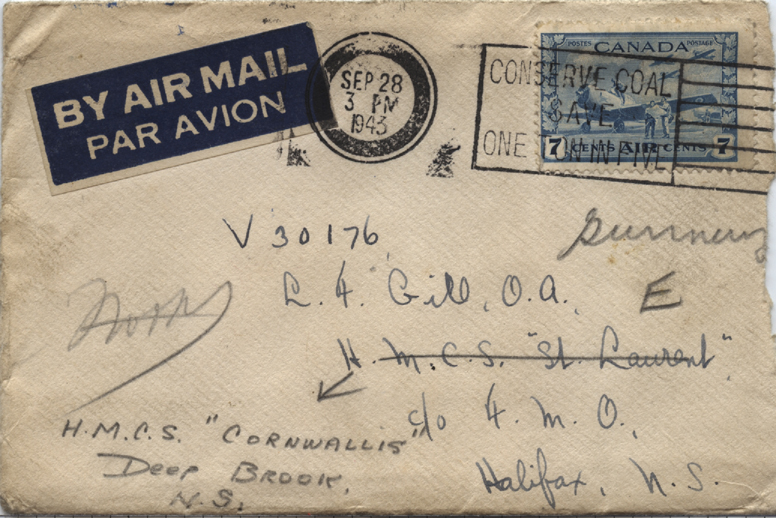 BY AIR MAIL
PAR AVION
SEP 28
3 PM
1943
CONSERVE COAL
SAVE
ONE TON IN FIVE
POSTES CANADA POSTAGE
7 CENTS AIR CENTS 7
V 30176
L. 4. Gill, O.A.
E
H.M.C.S. "St. Laurent"
c/o 4. M. O.,
Halifax, N.S.
H.M.C.S. "CORNWALLIS"
DEEP BROOK,
N.S.